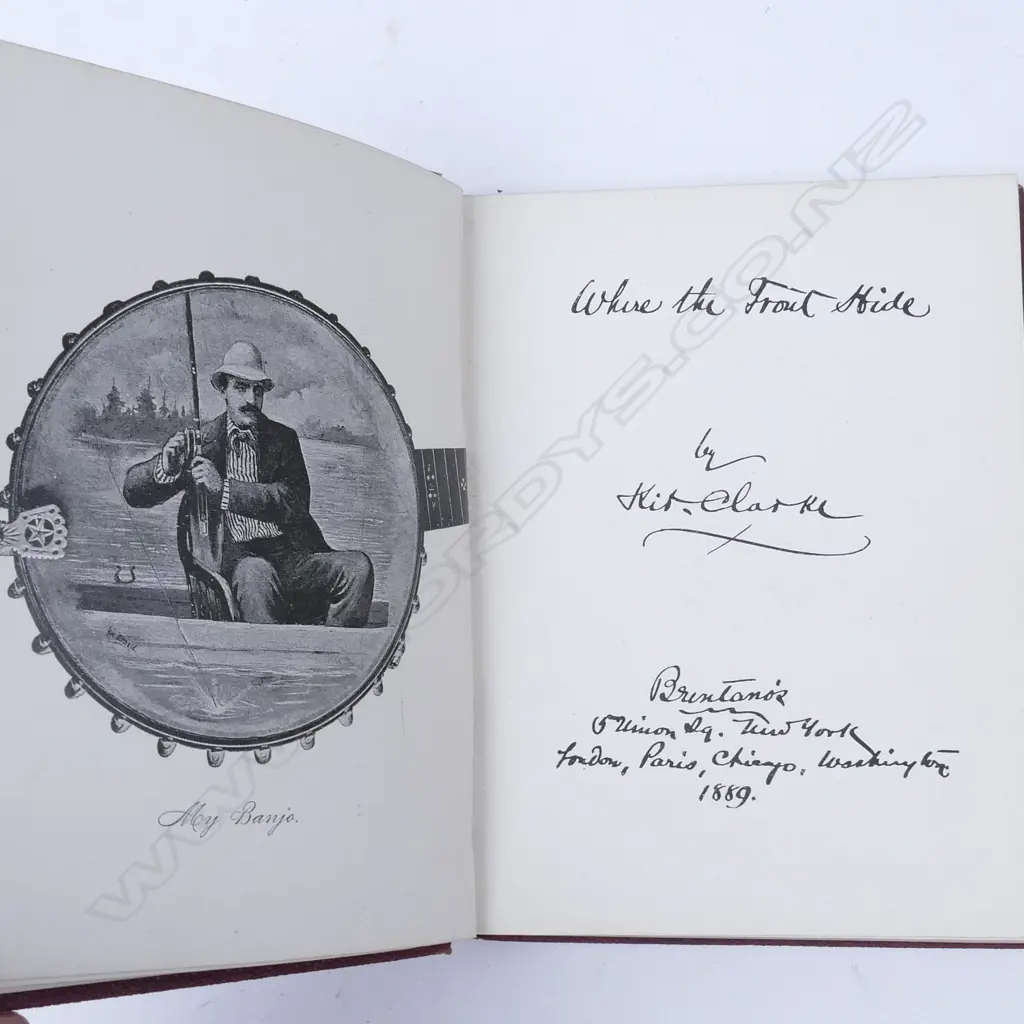 My Banjo.
Where the Trout Hide
by
Kit Clarke
Brentano's
5 Union Sq. New York
London, Paris, Chicago, Washington
1889.
WWW.CORDYS.CO.NZ